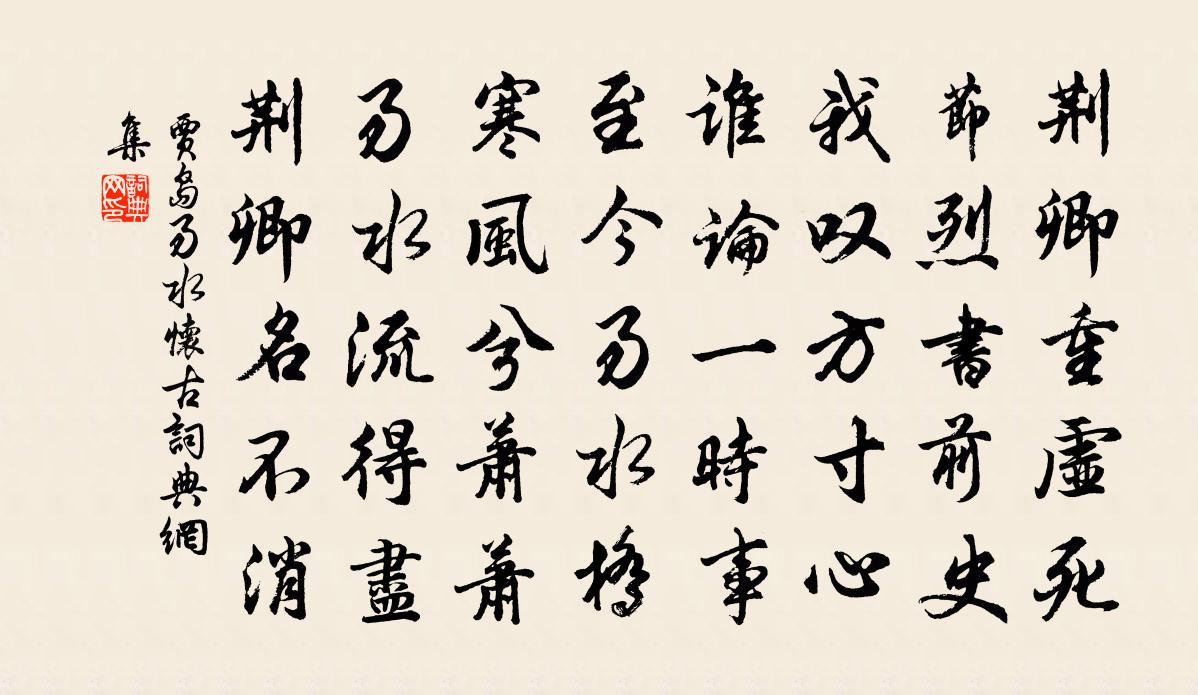 荆卿重虛死
節烈書前史
我叹方寸心
誰論一時事
至今易水橋
寒風兮蕭蕭
易水流得盡
荆卿名不消
賈島易水懷古詞典網
集
詞典網印